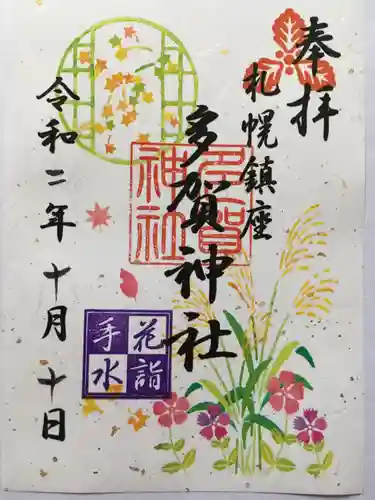 奉拝
札幌鎮座
多賀神社
多賀神社
令和二年十月十日
花詣
手水